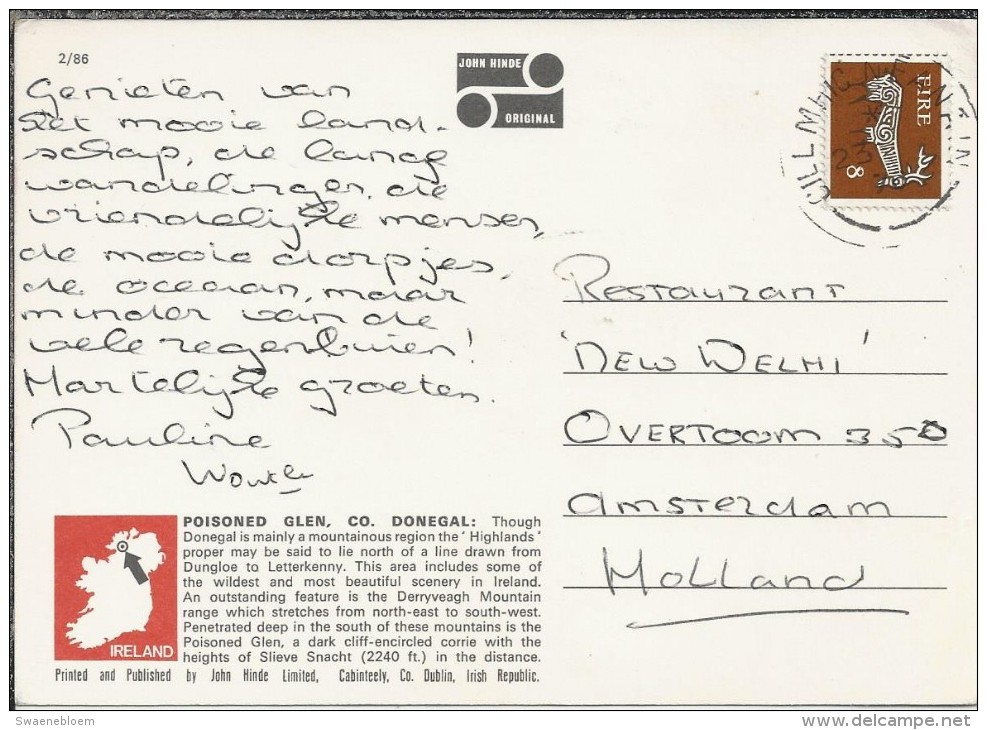 2/86
JOHN HINDE
ORIGINAL
EIRE
8
Genieten van
het mooie land-
schap, de lange
wandelingen, de
vriendelijke mensen,
de mooie dorpjes,
de oceaan, maar
minder van de
vele regenbuien!
Hartelijke groeten.
Pauline
Restaurant
'NEW DELHI'
OVERTOOM 350
Amsterdam
Holland
POISONED GLEN, CO. DONEGAL: Though
Donegal is mainly a mountainous region the 'Highlands'
proper may be said to lie north of a line drawn from
Dungloe to Letterkenny. This area includes some of
the wildest and most beautiful scenery in Ireland.
An outstanding feature is the Derryveagh Mountain
range which stretches from north-east to south-west.
Penetrated deep in the south of these mountains is the
Poisoned Glen, a dark cliff-encircled corrie with the
heights of Slieve Snacht (2240 ft.) in the distance.
IRELAND
Printed and Published by John Hinde Limited, Cabinteely, Co. Dublin, Irish Republic.
Swaenebloem
www.delcampe.net